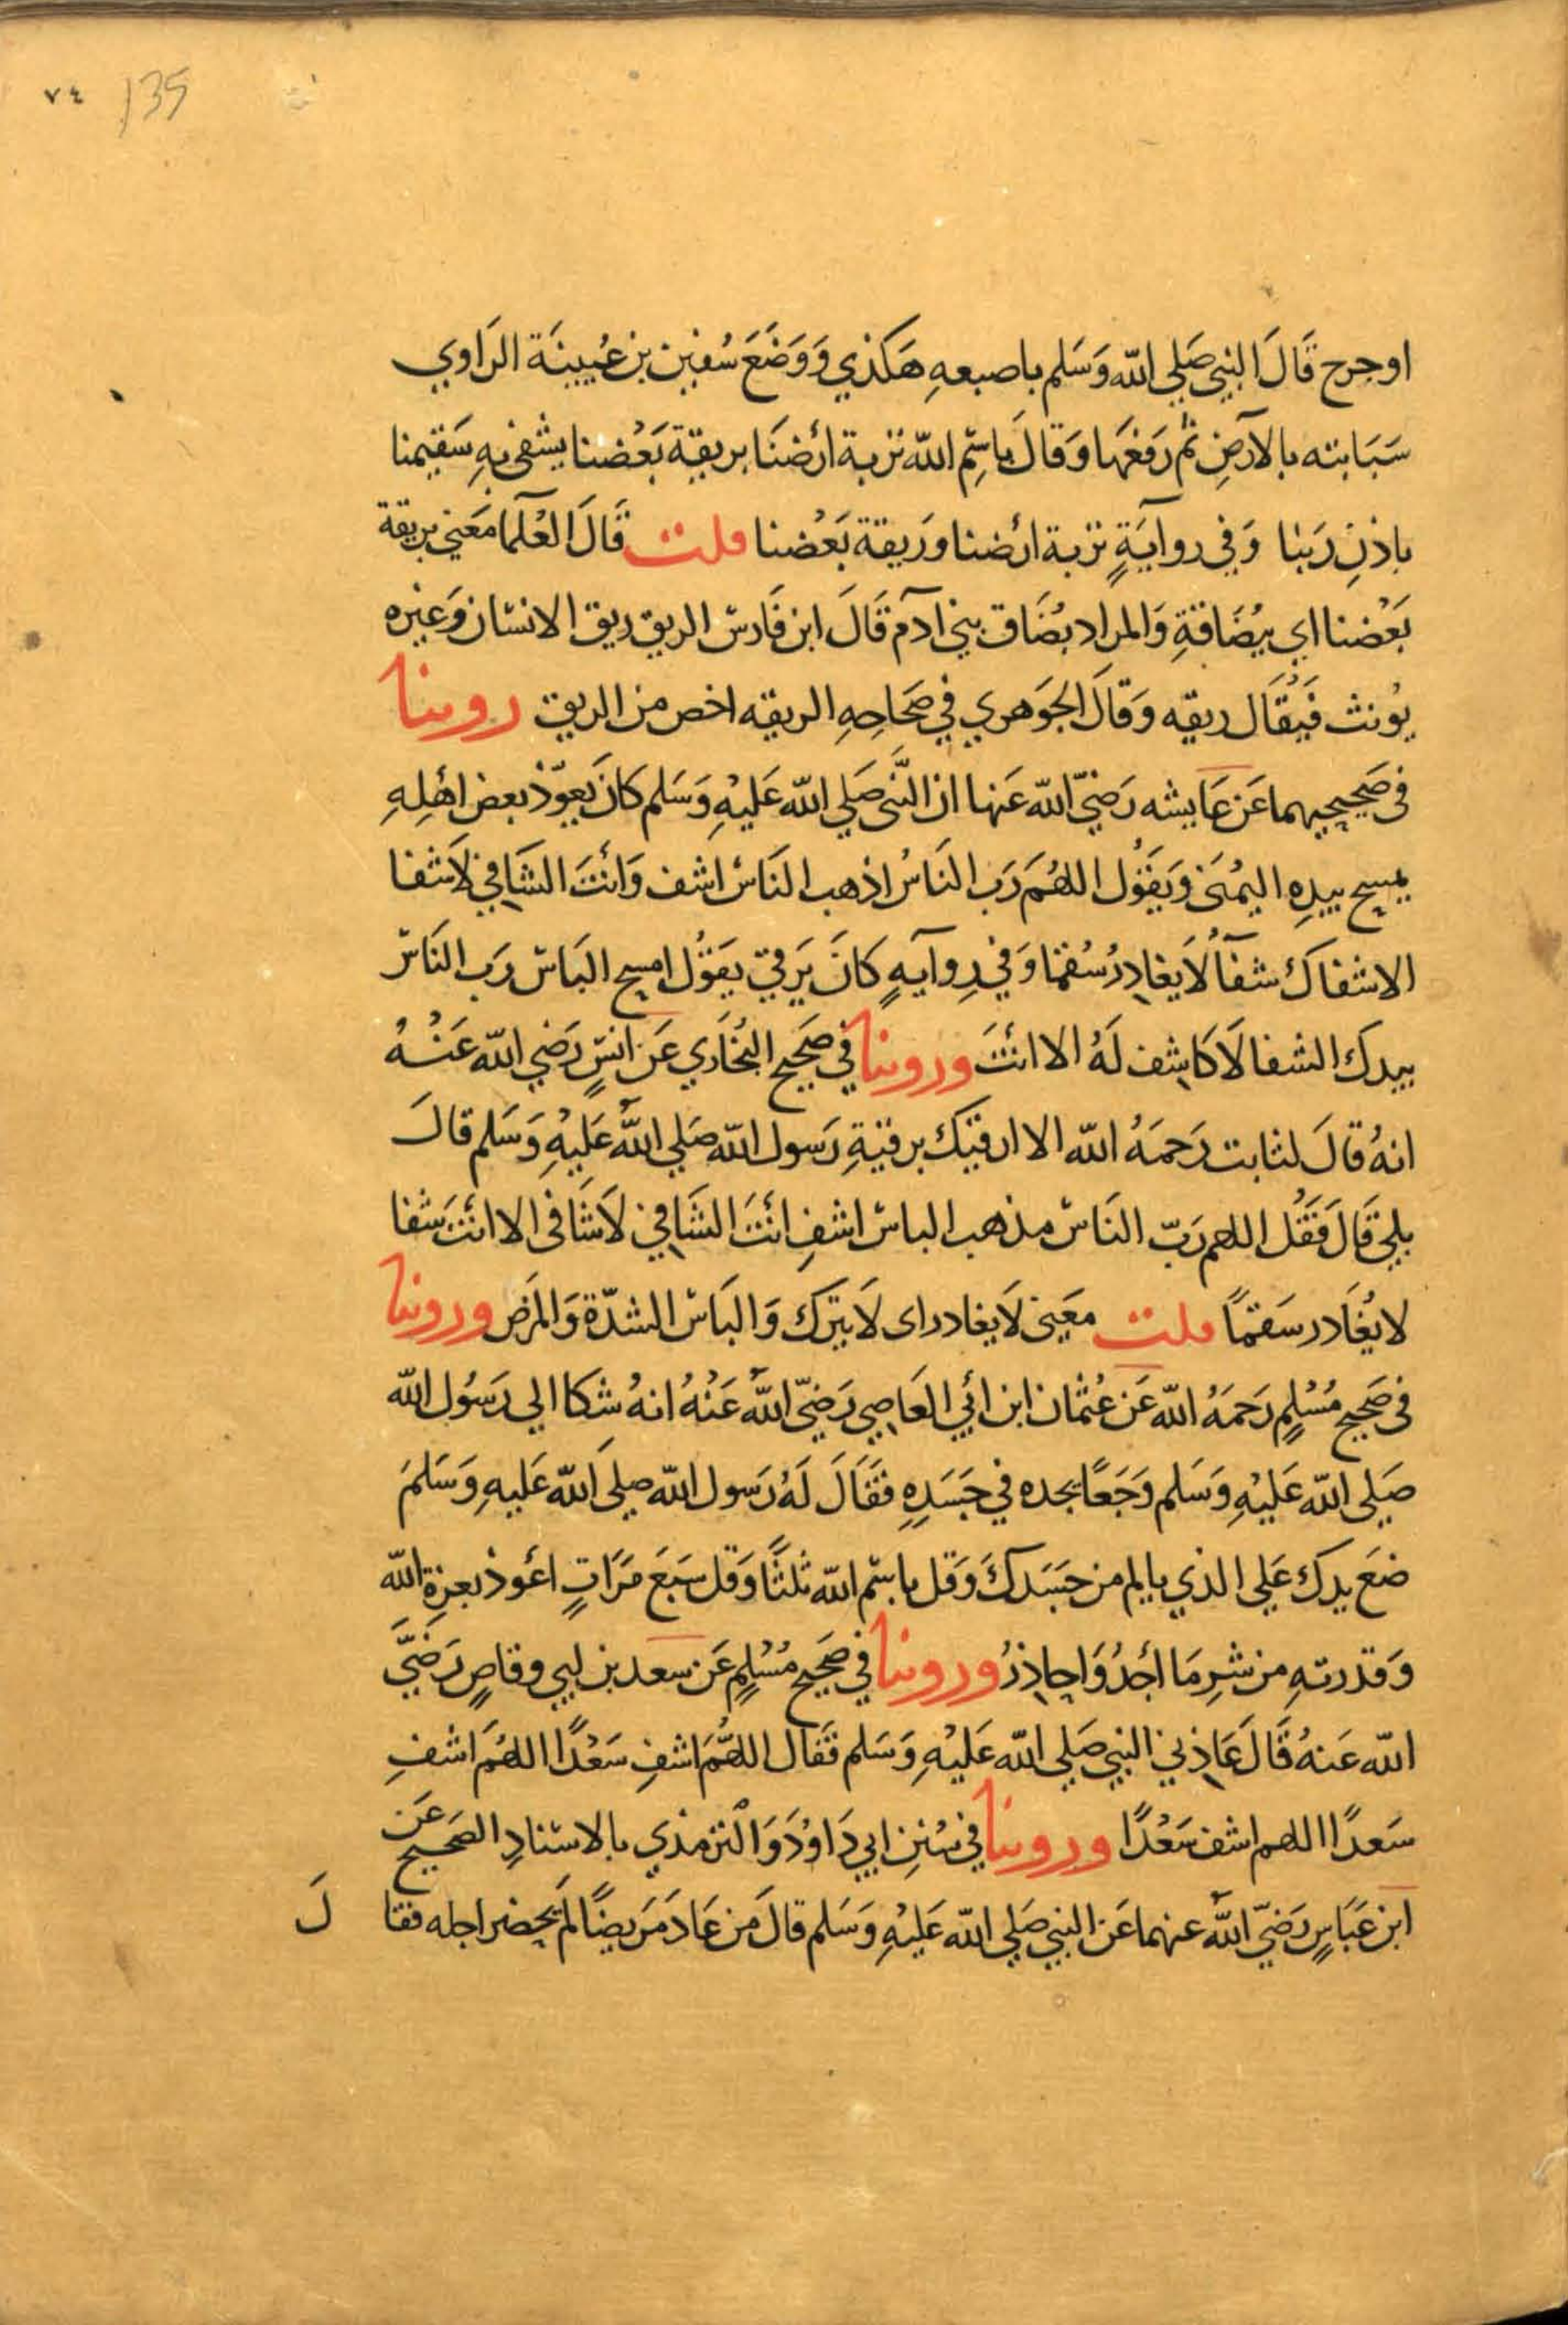 ٧٤ 135
او جرح قَالَ النبي صَلي الله وَسَلم باصبعهِ هَكذي وَوَضَعَ سُفين بن عُيينَة الرَاوي
سَبَابته بالآرضِ ثم رَفعَهَا وَقالَ باسِم الله تربة ارْضنَا بريقة بَعْضنا يشفى بهِ سَقيمنا
باذنِ رَبنا وَفي روآيَةٍ تربة ارْضنا وَريقة بَعْضنا قلت قَالَ العُلَمآ مَعَني بريقة
بَعْضنا اي ببُضَاقةِ وَالمراد بُضَاق بني ادَم قَالَ ابن فَارس الريق ريق الانسان وَغيره
يُونث فَيُقَال ريقه وَقالَ الجوَهري في صحَاحِهِ الريقه اخص من الريق روينا
فى صَحيحيهما عَن عَايشه رَضيّ الله عَنها ان النَّبي صَلي الله عَليْهِ وَسَلم كانَ يَعوّذ بعض اهْلِهِ
يمسح بيدِهِ اليمُنَي وَيقَوُل اللهُمَ رَب النَاسُ اذهب النَاسْ اشف وَانْتَ الشَافي لَاشفا
الاشفاك شفآً لَايغادِرُ سُقما وَفي رِوآيهٍ كانَ يَرقي يقَوُل امسح البَاس رَب النَاسْ
بيدك الشفا لَاكاشف لَهُ الا انْتَ وروينا في صَحيح البُخَاري عَن انسٍ رَضي الله عَنْهُ
انهُ قالَ لثابت رَحمَهُ الله الا ارقيَك برقيَةِ رَسول الله صَلي اللهُ عَليْهِ وَسَلم قالَ
بلي قَالَ فَقُل اللهم رَبّ النَاسْ مذهب الباسْ اشفِ انْتَ الشَافيْ لَاشَافى الا انْتَ شفا
لايُغَادر سَقمًا قلت معَنى لَايغادر اى لَايترك وَالبَاسْ الشدّة وَالمرَض وروينا
فى صَحيح مُسْلِمٍ رَحمَهُ الله عَن عُثمان ابن ابْي العَاصِي رَضيّ اللهُ عَنْهُ انهُ شكا الي رَسُول الله
صَلي الله عَليْهِ وَسَلم وَجَعًا يجده في جَسَدِهِ فقَالَ لَهُ رَسول الله صلي الله عَليهِ وَسَلمَ
ضعَ يدك عَلي الذي يالم من جَسَدكَ وَقل باسْم الله ثلثًا وَقل سَبَعَ مَرَاتٍ اعْوذ بعزة الله
وَقدرتهِ من شرِ مَا اَجدُ وَاحاذِرُ وروينا في صَحيح مُسْلِمٍ عَن سعد بن ابي وقاصٍ رَضيَّ
الله عَنهُ قَالَ عَاذِني النبي صَلي الله عَليْهِ وَسَلم فقال اللهُمَ اشفِ سَعْدًا اللهُمَ اشفِ
سَعدًا اللهم اشف سَعْدًا وروينا في سُننِ ابي دَاوُدَ وَالترمذي بالاسْنادِ الصَحيح عَن
ابن عَبَاسٍ رَضيّ اللهُ عنهما عَن النبي صَلي الله عَليْهِ وَسَلم قالَ مَن عَادَ مَريضًا لَم يحضر اجله فقا لَ